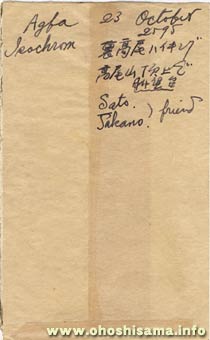 Agfa
Isochrom
23 October
2595
裏高尾ハイキング
高尾山頂上で
眺望台
Sato.
Takano.
) friend
www.ohoshisama.info